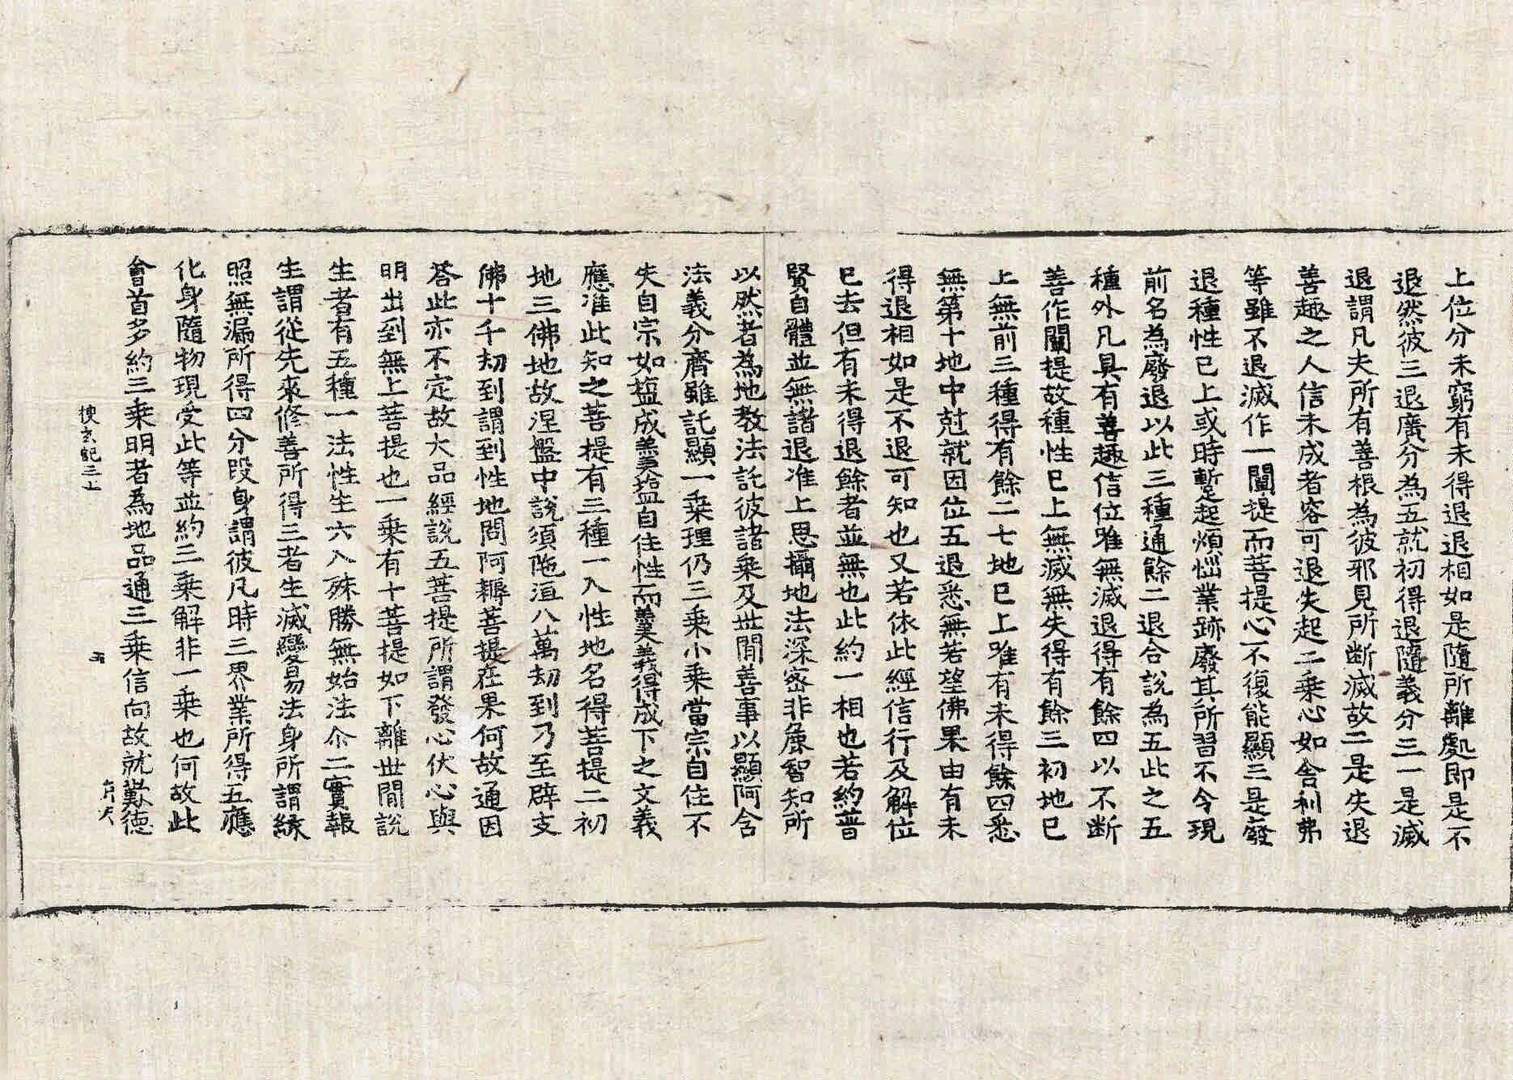 上位分未窮有未得退退相如是隨所離處即是不
退然彼三退廣分為五就初得退隨義分三一是滅
退謂凡夫所有善根為彼邪見所断滅故二是失退
善趣之人信未成者容可退失起二乘心如舍利弗
等雖不退滅作一闡提而菩提心不復能顯三是廢
退種性已上或時蹔起煩惱業跡廢其所習不令現
前名為廢退以此三種通餘二退合說為五此之五
種外凡具有善趣信位唯無滅退得有餘四以不断
善作闡提故種性已上無滅無失得有餘三初地已
上無前三種得有餘二七地已上唯有未得餘四悉
無第十地中尅就因位五退悉無若望佛果由有未
得退相如是不退可知也又若依此經信行及解位
已去但有未得退餘者並無也此約一相也若約普
賢自體並無諸退准上思攝地法深密非麁智知所
以然者為地教法託彼諸乘及世間善事以顯阿含
法義分齊雖託顯一乘理仍三乘小乘當宗自住不
失自宗如塩成羹塩自住性而羹義得成下之文義
應准此知之菩提有三種一入性地名得菩提二初
地三佛地故涅盤中說須陁洹八萬劫到乃至辟支
佛十千劫到謂到性地問阿耨菩提在果何故通因
荅此亦不定故大品經說五菩提所謂發心伏心與
明出到無上菩提也一乘有十菩提如下離世間說
生者有五種一法性生六入殊勝無始法尒二實報
生謂從先來修善所得三者生滅變易法身所謂緣
照無漏所得四分段身謂彼凡時三界業所得五應
化身隨物現受此等並約三乘解非一乘也何故此
會首多約三乘明者為地品通三乘信向故就歎德
搜玄記三上